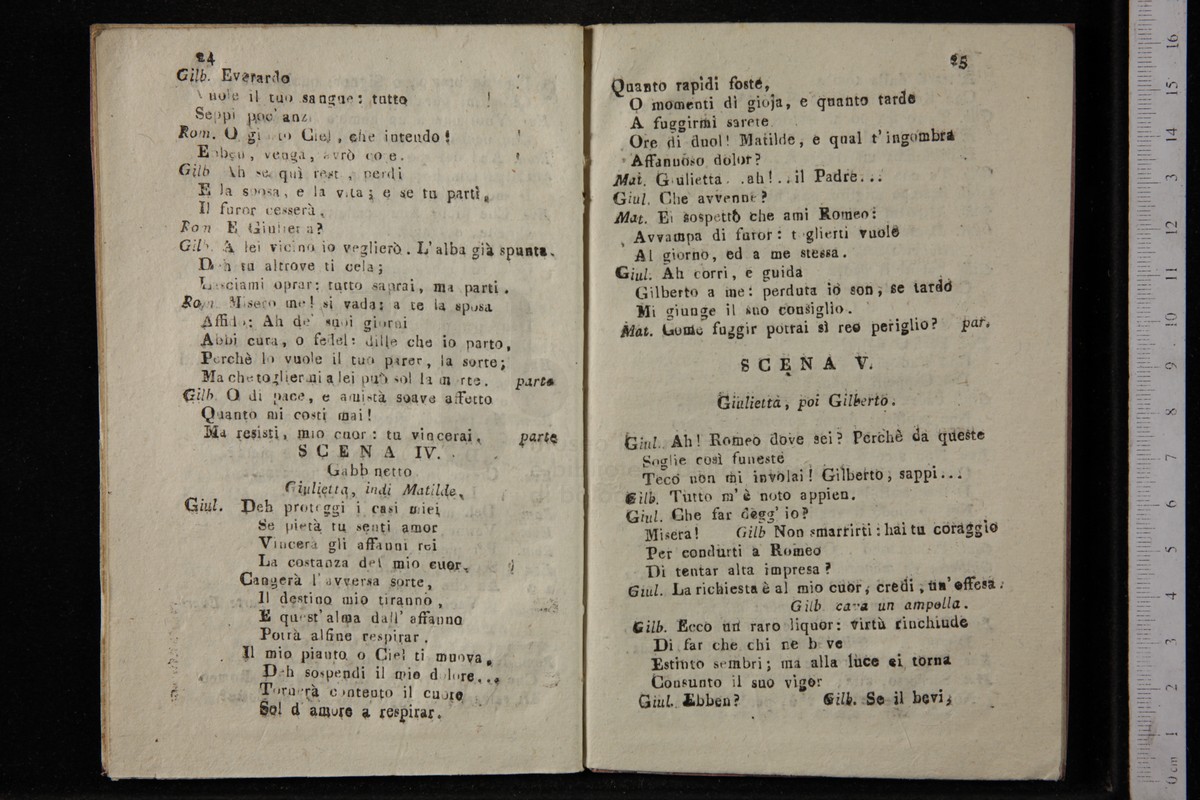 24
Gilb. Everardo
Vuole il tuo sangue: tutto
Seppi poc' anzi
Rom. O giusto Ciel, che intendo!
Ebben, venga, avrò core.
Gilb. Ah se quì resti, perdi
E la sposa, e la vita; e se tu parti,
Il furor cesserà.
Rom. E Giulietta?
Gilb. A lei vicino io veglierò. L'alba già spunta.
Deh tu altrove ti cela;
Lasciami oprar: tutto saprai, ma parti.
Rom. Misero me! si vada: a te la sposa
Affido: Ah de' suoi giorni
Abbi cura, o fedel: dille che io parto,
Perchè lo vuole il tuo parer, la sorte;
Ma che togliermi a lei può sol la morte. parte
Gilb. O di pace, e amistà soave affetto
Quanto mi costi mai!
Ma resisti, mio cuor: tu vincerai. parte
SCENA IV.
Gabbinetto
Giulietta, indi Matilde.
Giul. Deh proteggi i casi miei
Se pietà tu senti amor
Vincerà gli affanni rei
La costanza del mio cuor.
Cangerà l'avversa sorte,
Il destino mio tiranno,
E quest'alma dall' affanno
Potrà alfine respirar.
Il mio pianto o Ciel ti muova,
Deh sospendi il mio dolore...
Tornerà contento il cuore
Sol d'amore a respirar.
25
Quanto rapidi foste,
O momenti di gioja, e quanto tarde
A fuggirmi sarete
Ore di duol! Matilde, e qual t'ingombra
Affannoso dolor?
Mat. Giulietta. .ah!..il Padre...
Giul. Che avvenne?
Mat. Ei sospettò che ami Romeo:
Avvampa di furor: toglierti vuole
Al giorno, ed a me stessa.
Giul. Ah corri, e guida
Gilberto a me: perduta io son, se tardo
Mi giunge il suo consiglio.
Mat. Come fuggir potrai sì reo periglio? par.
SCENA V.
Giulietta, poi Gilberto.
Giul. Ah! Romeo dove sei? Perchè da queste
Soglie così funeste
Teco non mi involai! Gilberto, sappi...
Gilb. Tutto m'è noto appien.
Giul. Che far degg' io?
Misera! Gilb Non smarrirti: hai tu coraggio
Per condurti a Romeo
Di tentar alta impresa?
Giul. La richiesta è al mio cuor, credi, un'offesa.
Gilb cava un ampolla.
Gilb. Ecco un raro liquor: virtù rinchiude
Di far che chi ne beve
Estinto sembri; ma alla luce ei torna
Consunto il suo vigor
Giul. Ebben? Gilb. Se il bevi,